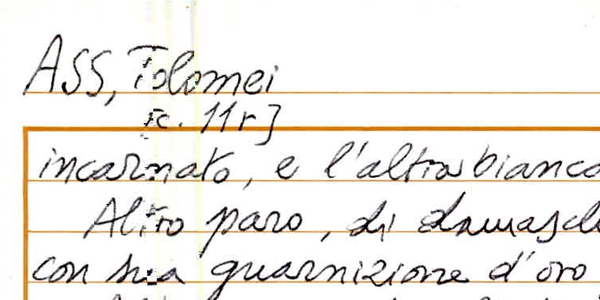 ASS, Tolomei
[c. 11r]
incarnato, e l'altra bianca
Altro paro, di damasch
con sua guarnizione d'oro